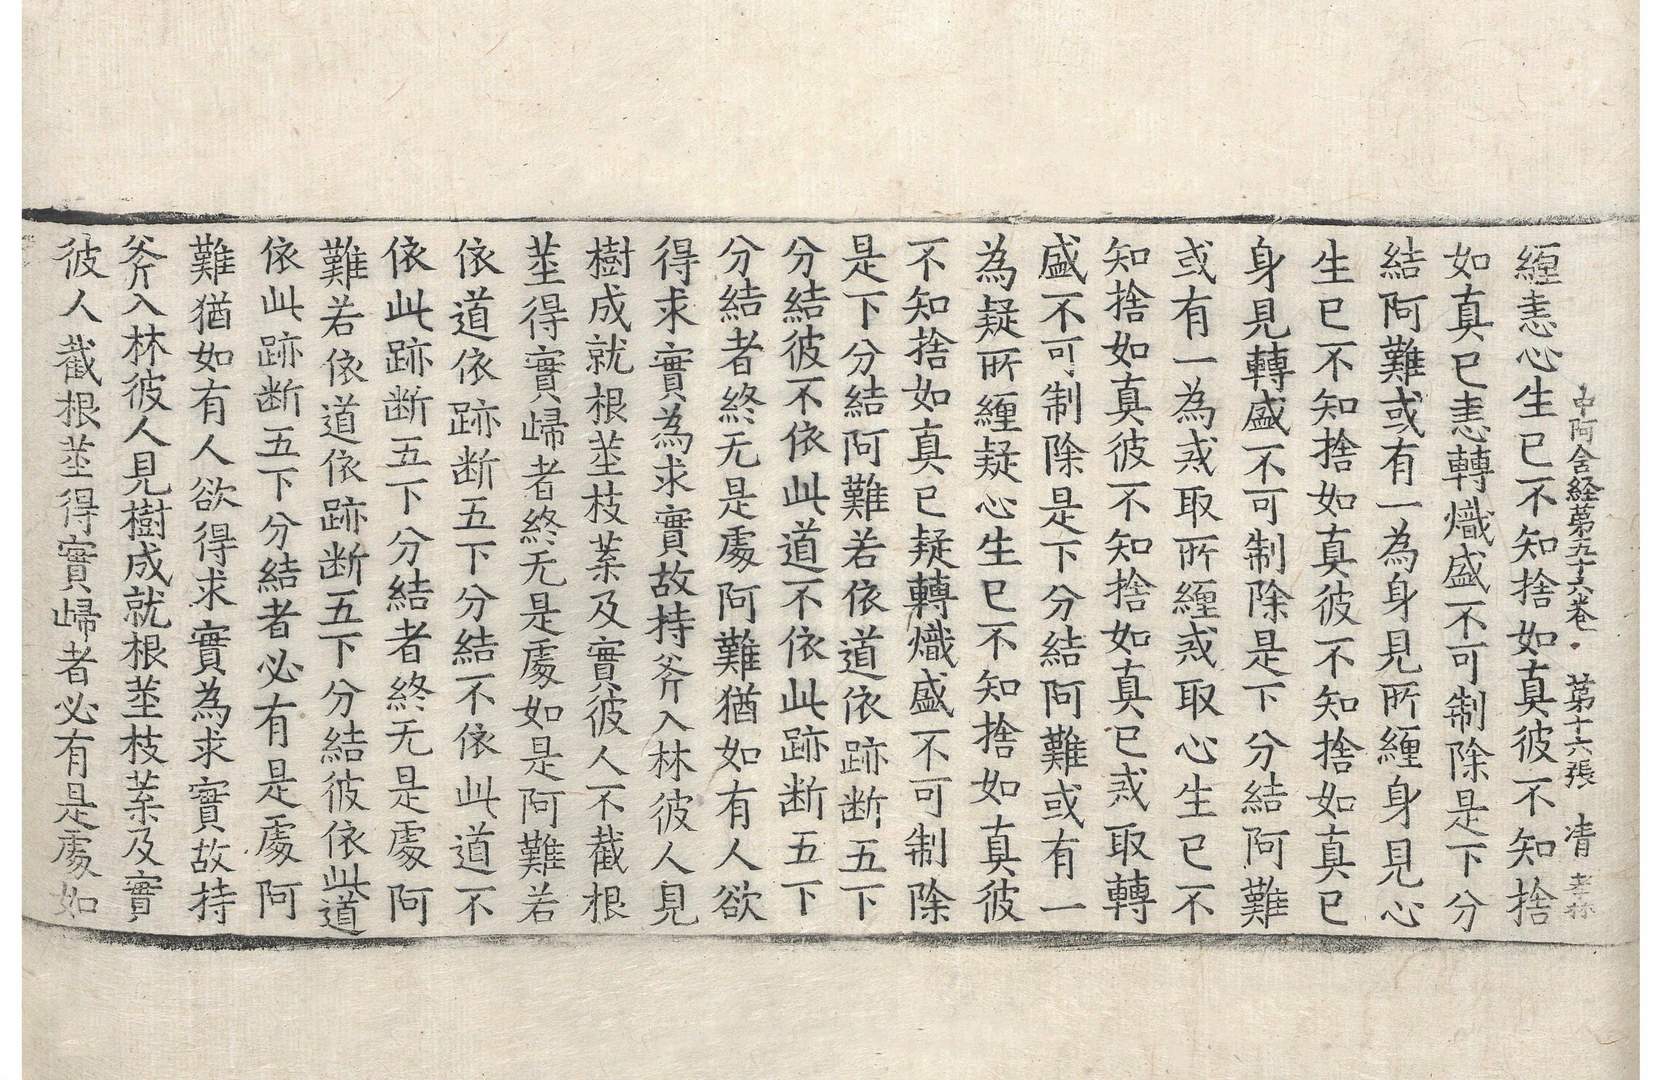 中阿含経第五十六卷 第十六張 凊
纏恚心生已不知捨如真彼不知捨
如真已恚轉熾盛不可制除是下分
結阿難或有一為身見所纏身見心
生已不知捨如真彼不知捨如真已
身見轉盛不可制除是下分結阿難
或有一為戒取所纏戒取心生已不
知捨如真彼不知捨如真已戒取轉
盛不可制除是下分結阿難或有一
為疑所纏疑心生已不知捨如真彼
不知捨如真已疑轉熾盛不可制除
是下分結阿難若依道依跡断五下
分結彼不依此道不依此跡断五下
分結者終无是處阿難猶如有人欲
得求實為求實故持斧入林彼人見
樹成就根莖枝葉及實彼人不截根
莖得實歸者終无是處如是阿難若
依道依跡断五下分結不依此道不
依此跡断五下分結者終无是處阿
難若依道依跡断五下分結彼依此道
依此跡断五下分結者必有是處阿
難猶如有人欲得求實為求實故持
斧入林彼人見樹成就根莖枝葉及實
彼人截根莖得實歸者必有是處如